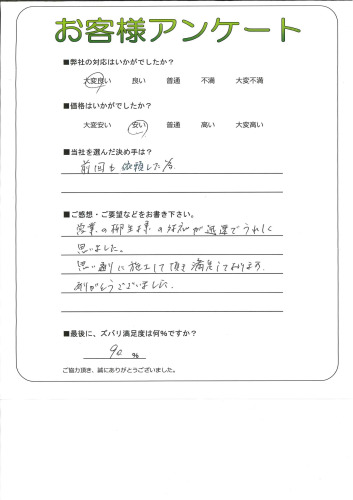 お客様アンケート
■弊社の対応はいかがでしたか？
大変良い 良い 普通 不満 大変不満
■価格はいかがでしたか？
大変安い 安い 普通 高い 大変高い
■当社を選んだ決め手は？
前回も依頼した為
■ご感想・ご要望などをお書き下さい。
営業の柳生様の対応が迅速でうれしく
思いました。
思い通りに施工して頂き満足しております.
ありがとうございました.
■最後に、ズバリ満足度は何%ですか？
90 %
ご協力頂き、誠にありがとうございました。